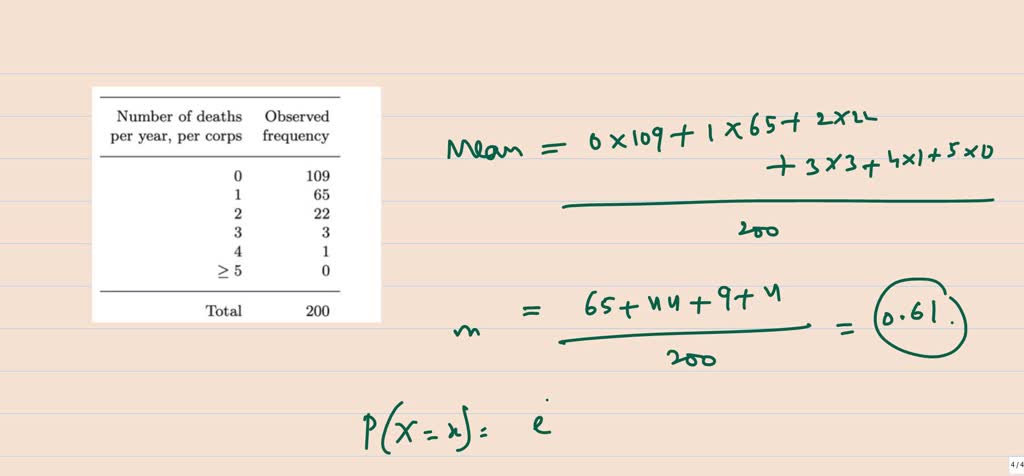 Number of deaths Observed
per year, per corps frequency
0 109
1 65
2 22
3 3
4 1
≥ 5 0
Total 200
Mean = 0×109 + 1×65 + 2×22
+ 3×3 + 4×1 + 5×0
200
m = 65 + 44 + 9 + 4
200
= 0.61.
P(X=x) = e
4/4